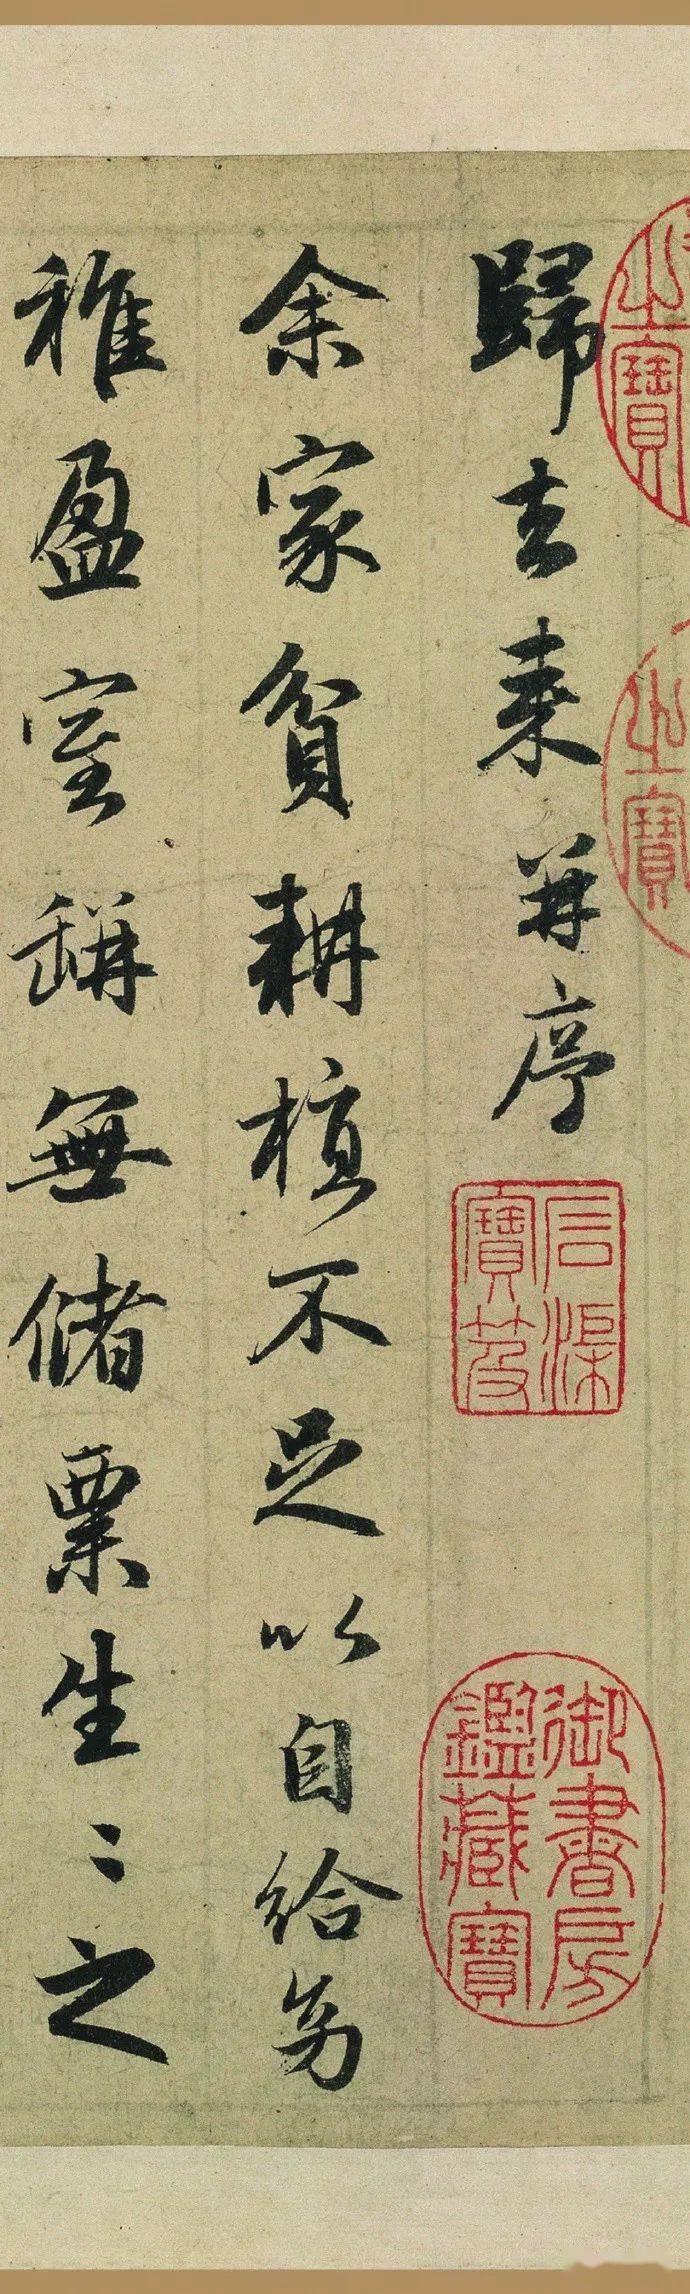 歸去来并序
余家貧耕植不足以自給幼
稚盈室缾無儲粟生〻之
之寶
之寶
石渠
寶笈
御書房
鑑藏寶